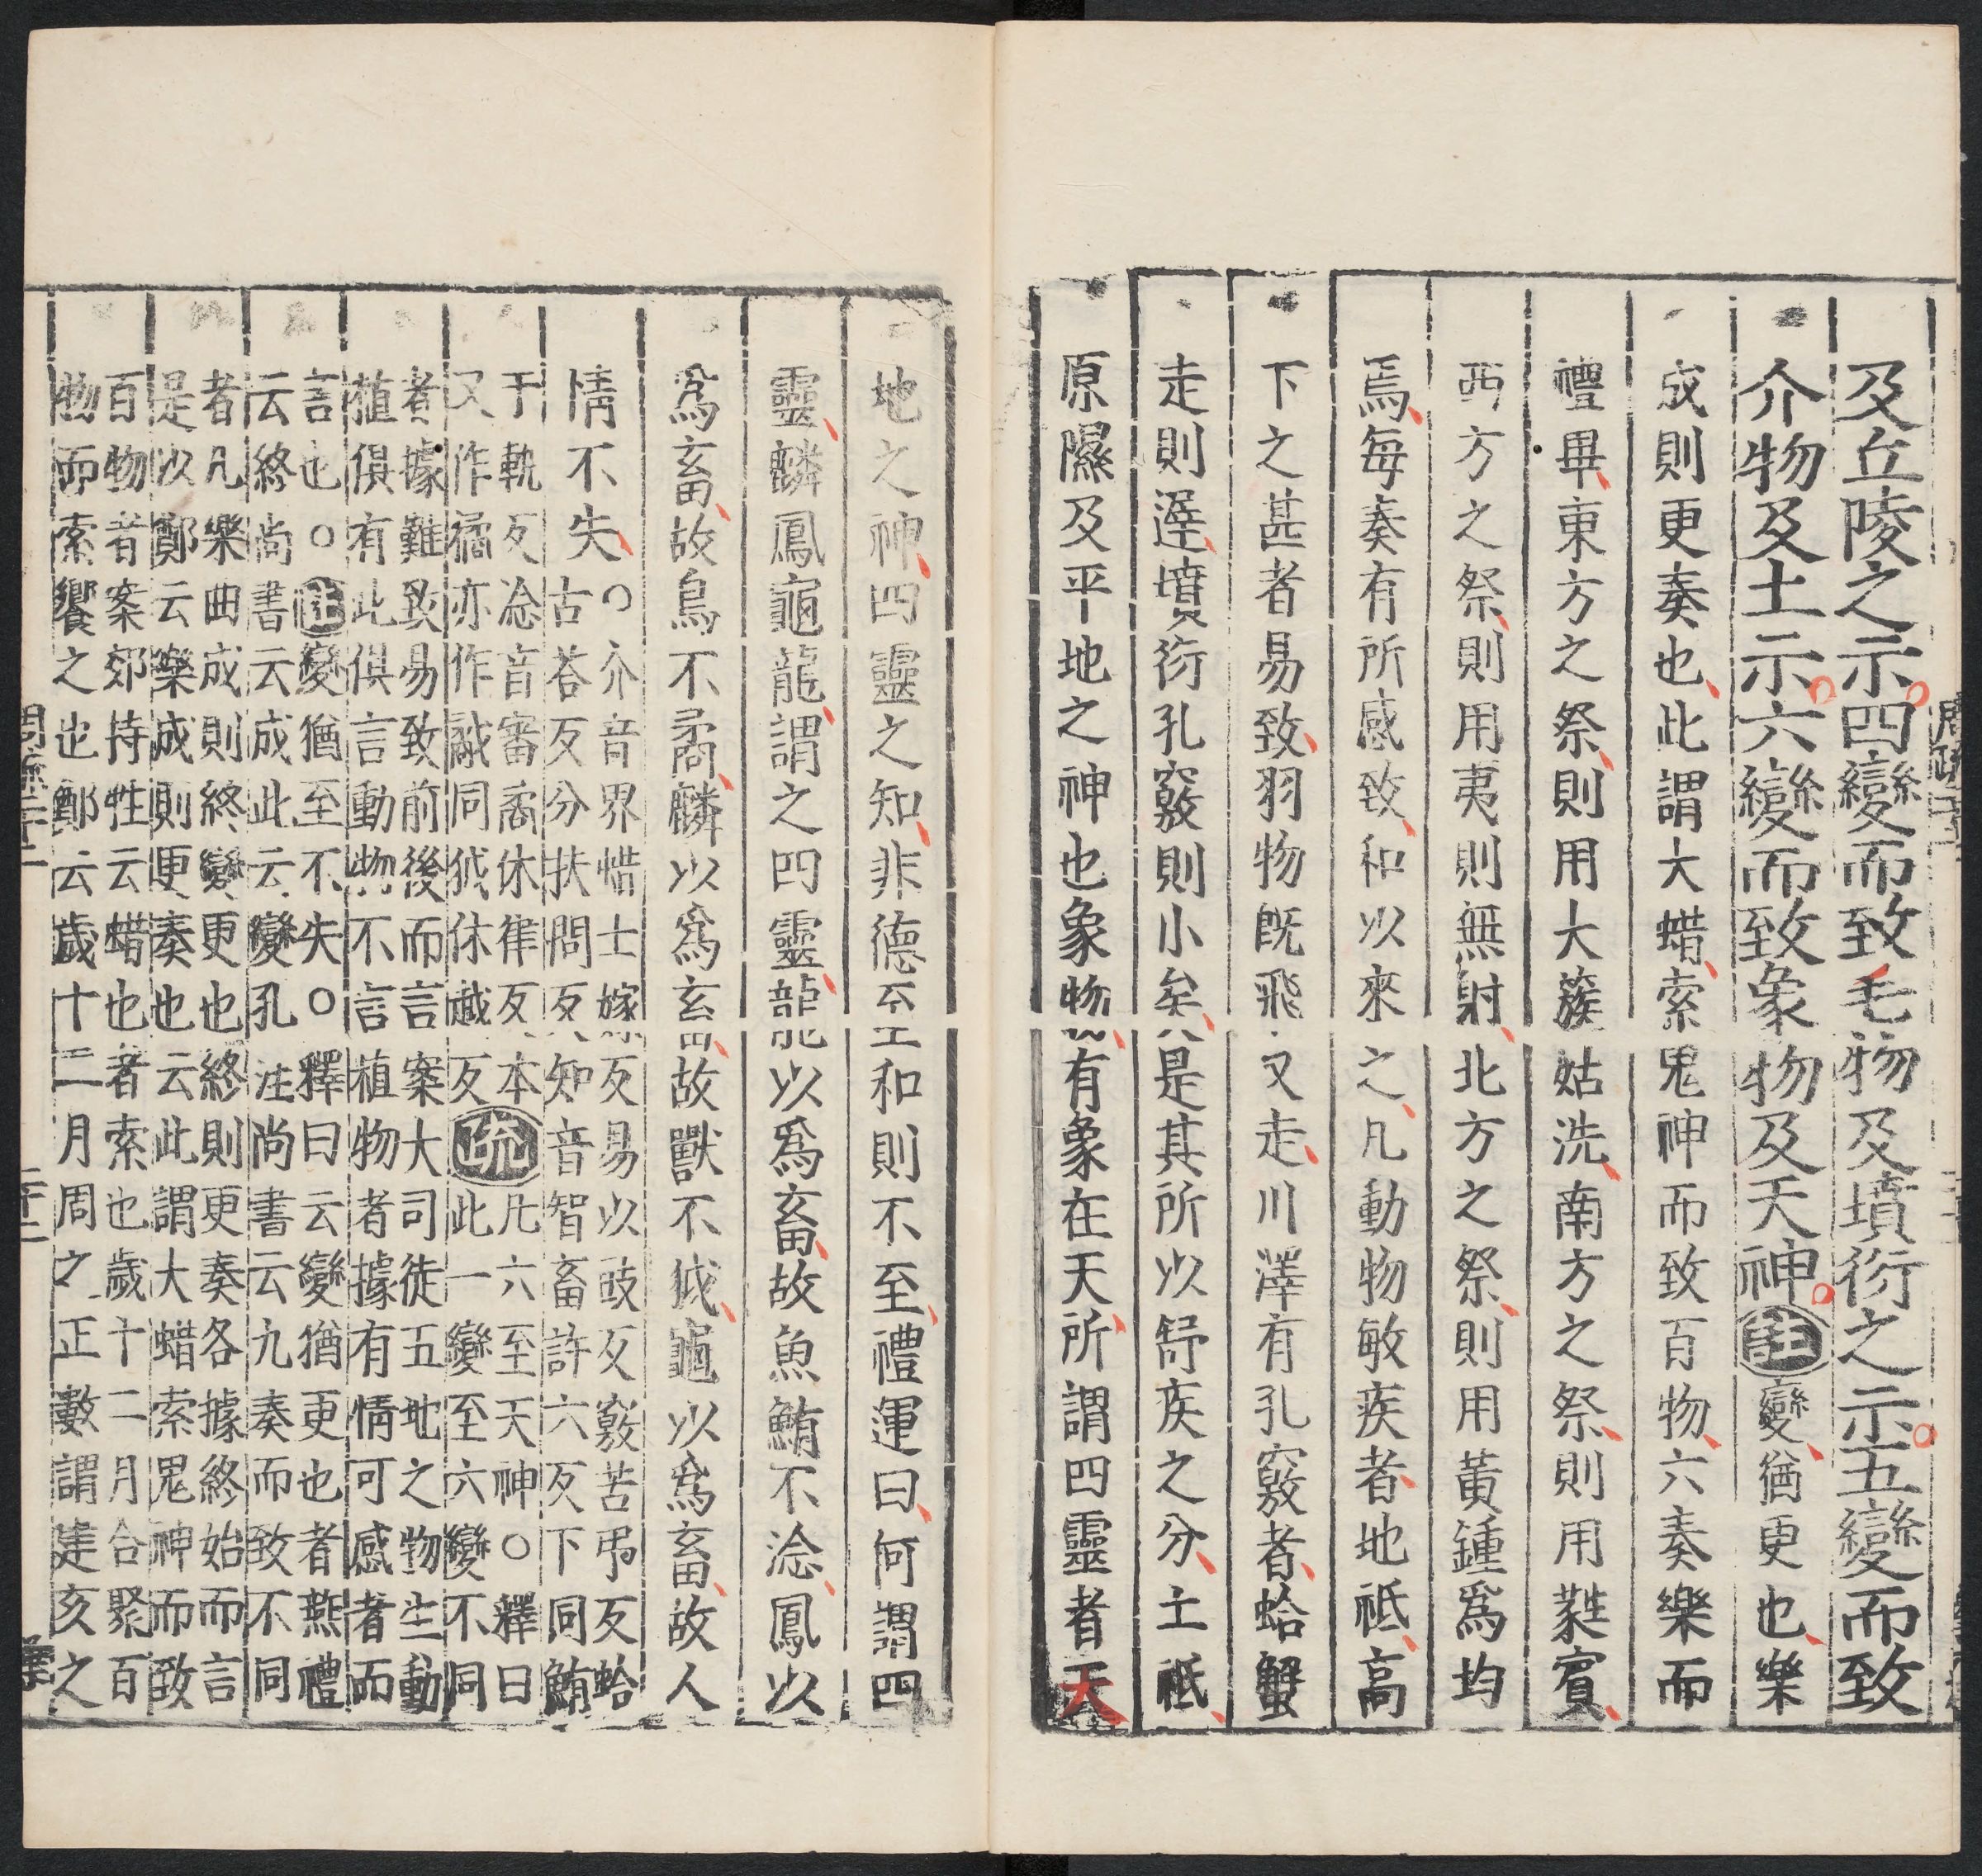 及丘陵之示四變而致毛物及墳衍之示五變而致
介物及土示六變而致象物及天神註變猶更也樂
成則更奏也此謂大蜡索鬼神而致百物六奏樂而
禮畢東方之祭則用大蔟姑洗南方之祭則用蕤賓
西方之祭則用夷則無射北方之祭則用黃鍾爲均
焉每奏有所感致和以來之凡動物敏疾者地祗高
下之甚者易致羽物旣飛又走川澤有孔竅者蛤蟹
走則遲墳衍孔竅則小矣是其所以舒疾之分土祗
原隰及平地之神也象物有象在天所謂四靈者天
地之神四靈之知非德至和則不至禮運曰何謂四
靈麟鳳龜龍謂之四靈龍以爲畜故魚鮪不淰鳳以
爲畜故鳥不矞麟以爲畜故獸不狘龜以爲畜故人
情不失○
介音界蜡士嫁反易以豉反竅苦弔反蛤
古荅反分扶問反知音智畜許六反下同鮪
于軌反淰音審矞休律反本
又作獝亦作𤟎同狘休越反
疏
凡六至天神○釋曰
此一變至六變不同
者據難致易致前後而言案大司徒五地之物生動
植俱有此俱言動物不言植物者據有情可感者而
言也○註變猶至不失○釋曰云變猶更也者燕禮
云終尚書云成此云變孔注尚書云九奏而致不同
者凡樂曲成則終變更也終則更奏各據終始而言
是以鄭云樂成則更奏也云此謂大蜡索鬼神而致
百物者案郊特牲云蜡也者索也歲十二月合聚百
物而索饗之也鄭云歲十二月周之正數謂建亥之
周疏二十二
二十二